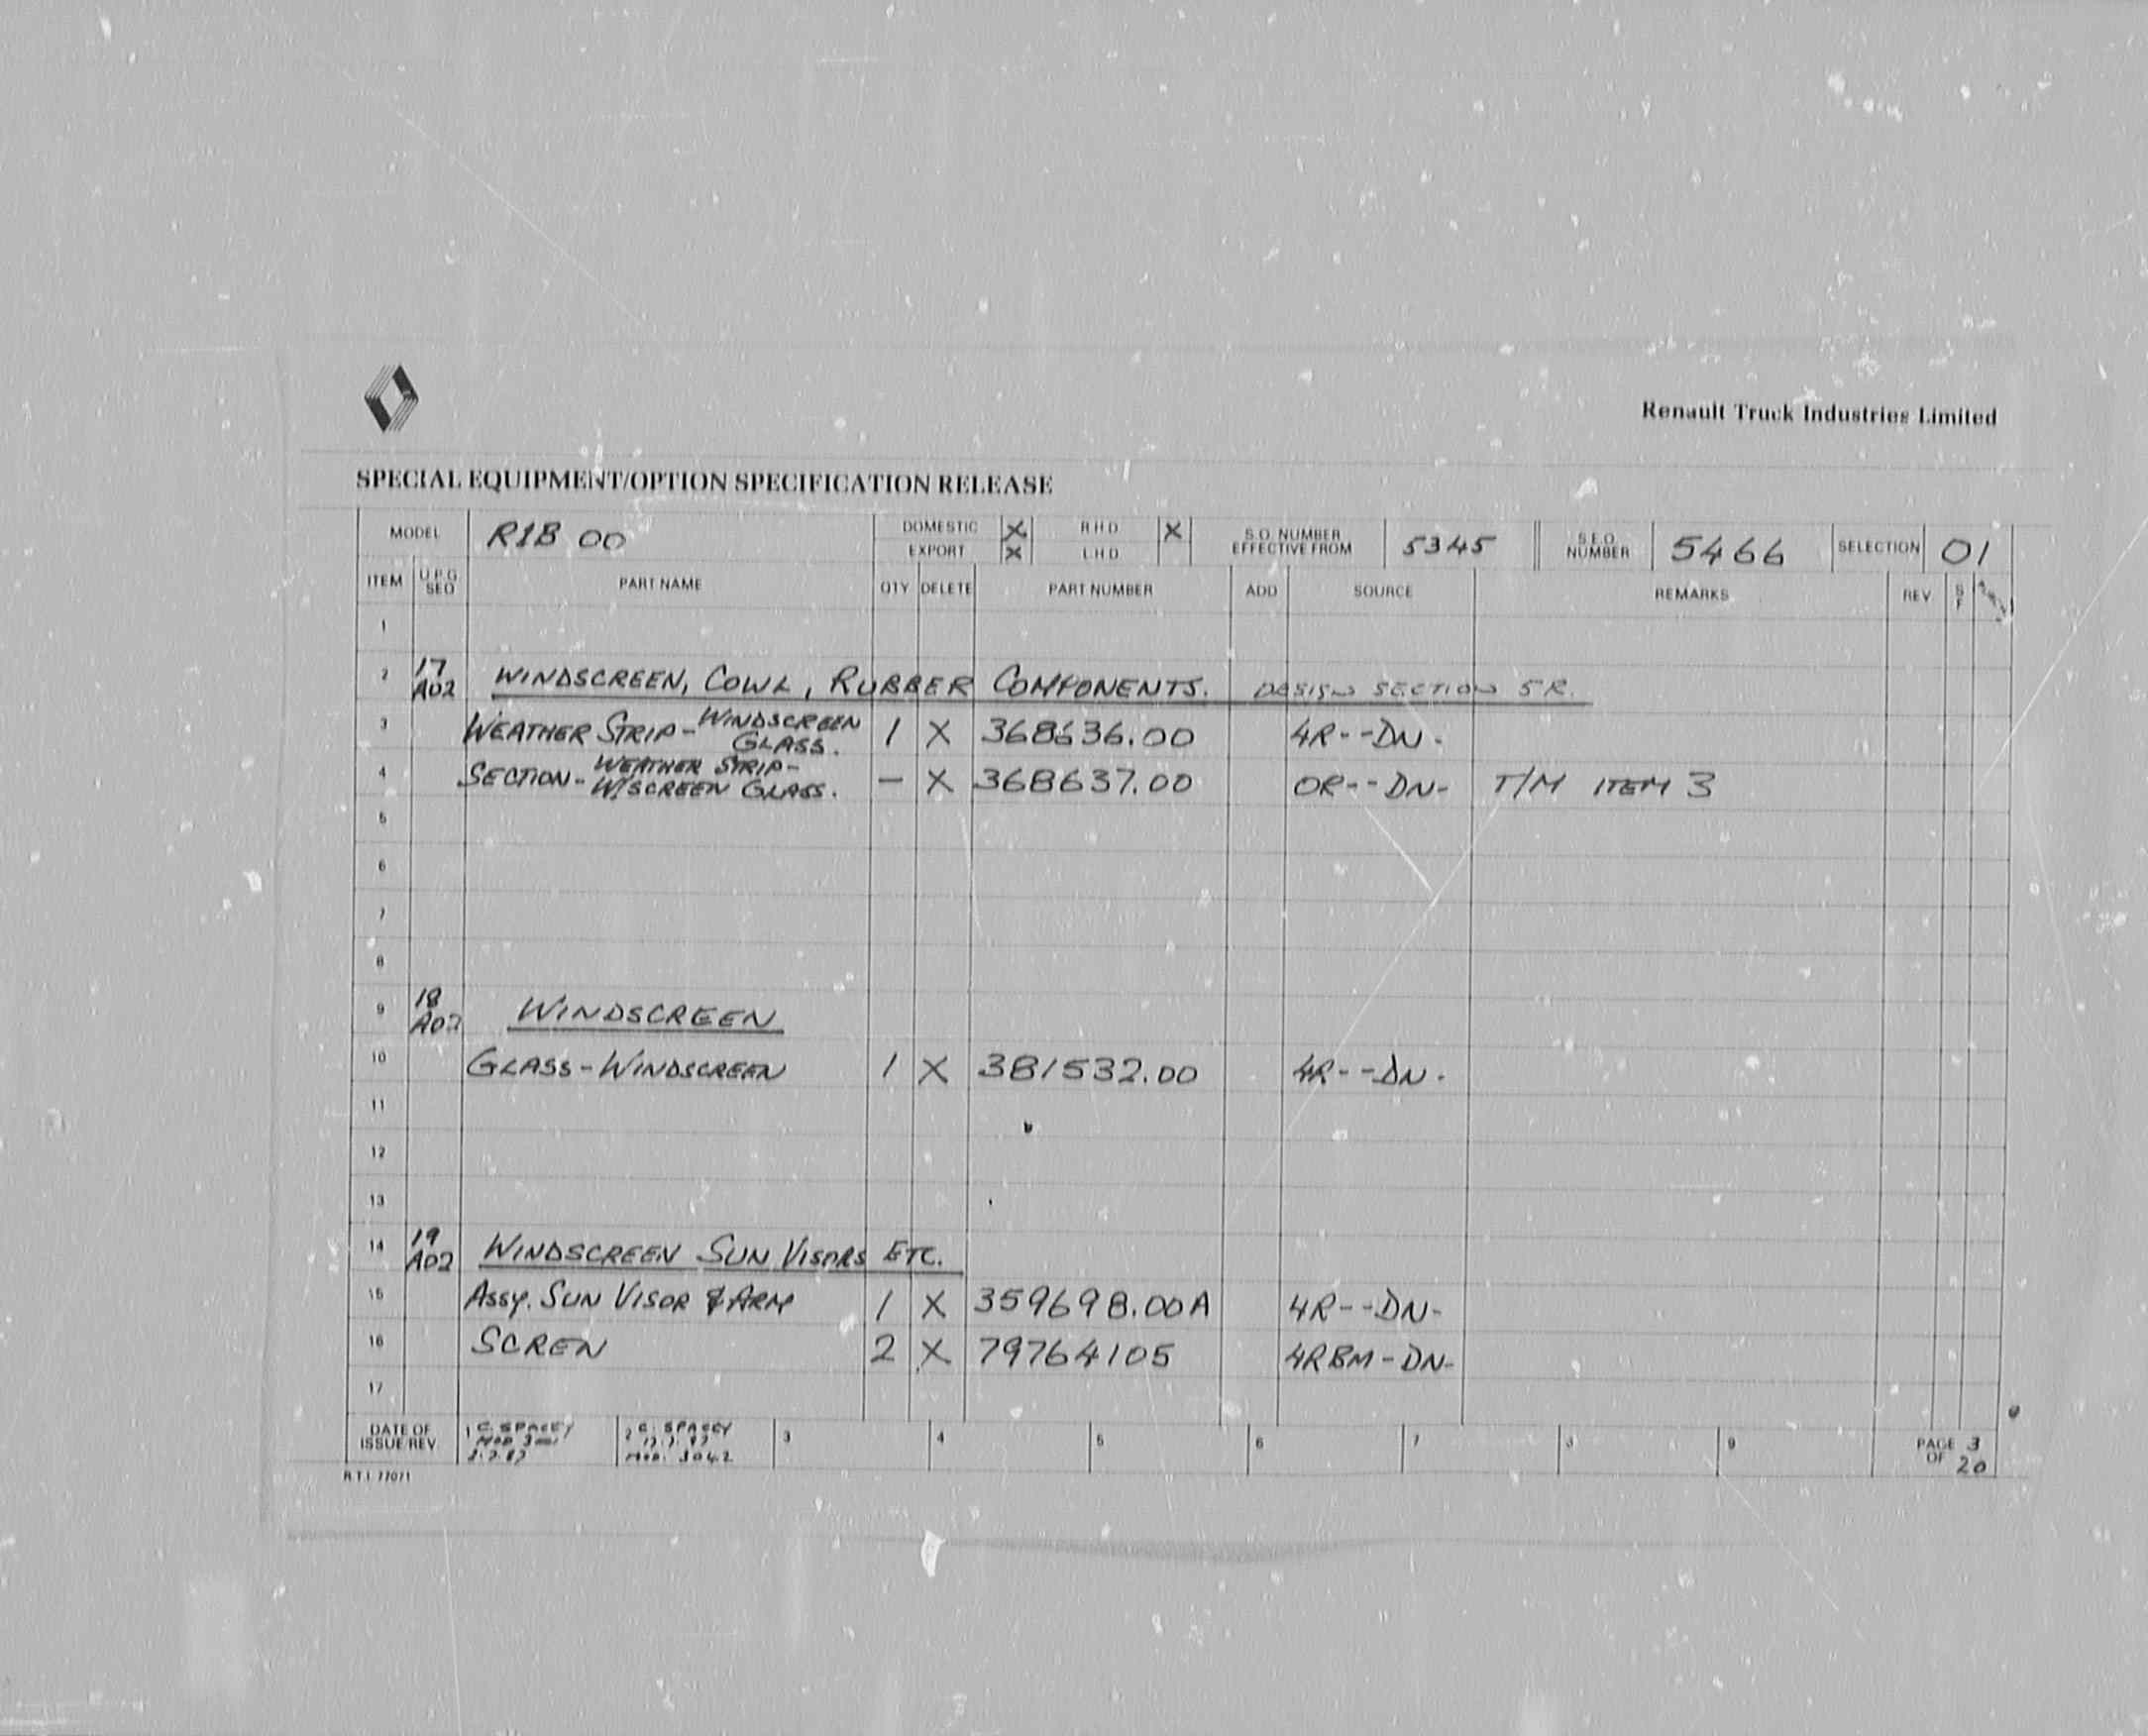 Renault Truck Industries Limited
SPECIAL EQUIPMENT/OPTION SPECIFICATION RELEASE
MODEL R1B 00 DOMESTIC X R H D X S.O. NUMBER EFFECTIVE FROM 5345 S.E.O. NUMBER 5466 SELECTION 01
EXPORT X L.H.D
ITEM U.P.G. SEQ PART NAME QTY DELETE PART NUMBER ADD SOURCE REMARKS REV S F
1
2 17 A02 WINDSCREEN, COWL, RUBBER COMPONENTS. DESIGN SECTION 5R.
3 WEATHER STRIP - WINDSCREEN GLASS. 1 X 368636.00 4R--DN-
4 SECTION - WEATHER STRIP - W/SCREEN GLASS. - X 368637.00 OR--DN- T/M ITEM 3
5
6
7
8
9 18 A02 WINDSCREEN
10 GLASS - WINDSCREEN 1 X 381532.00 4R--DN-
11
12
13
14 19 A02 WINDSCREEN SUN VISORS ETC.
15 ASSY. SUN VISOR & ARM 1 X 359698.00A 4R--DN-
16 SCREN 2 X 79764105 4RBM-DN-
17
DATE OF ISSUE/REV 1 C. SPACEY 2 C. SPACEY MOD. 3042 3 4 5 6 7 8 9 PAGE 3 OF 20
R.T.I. 77071